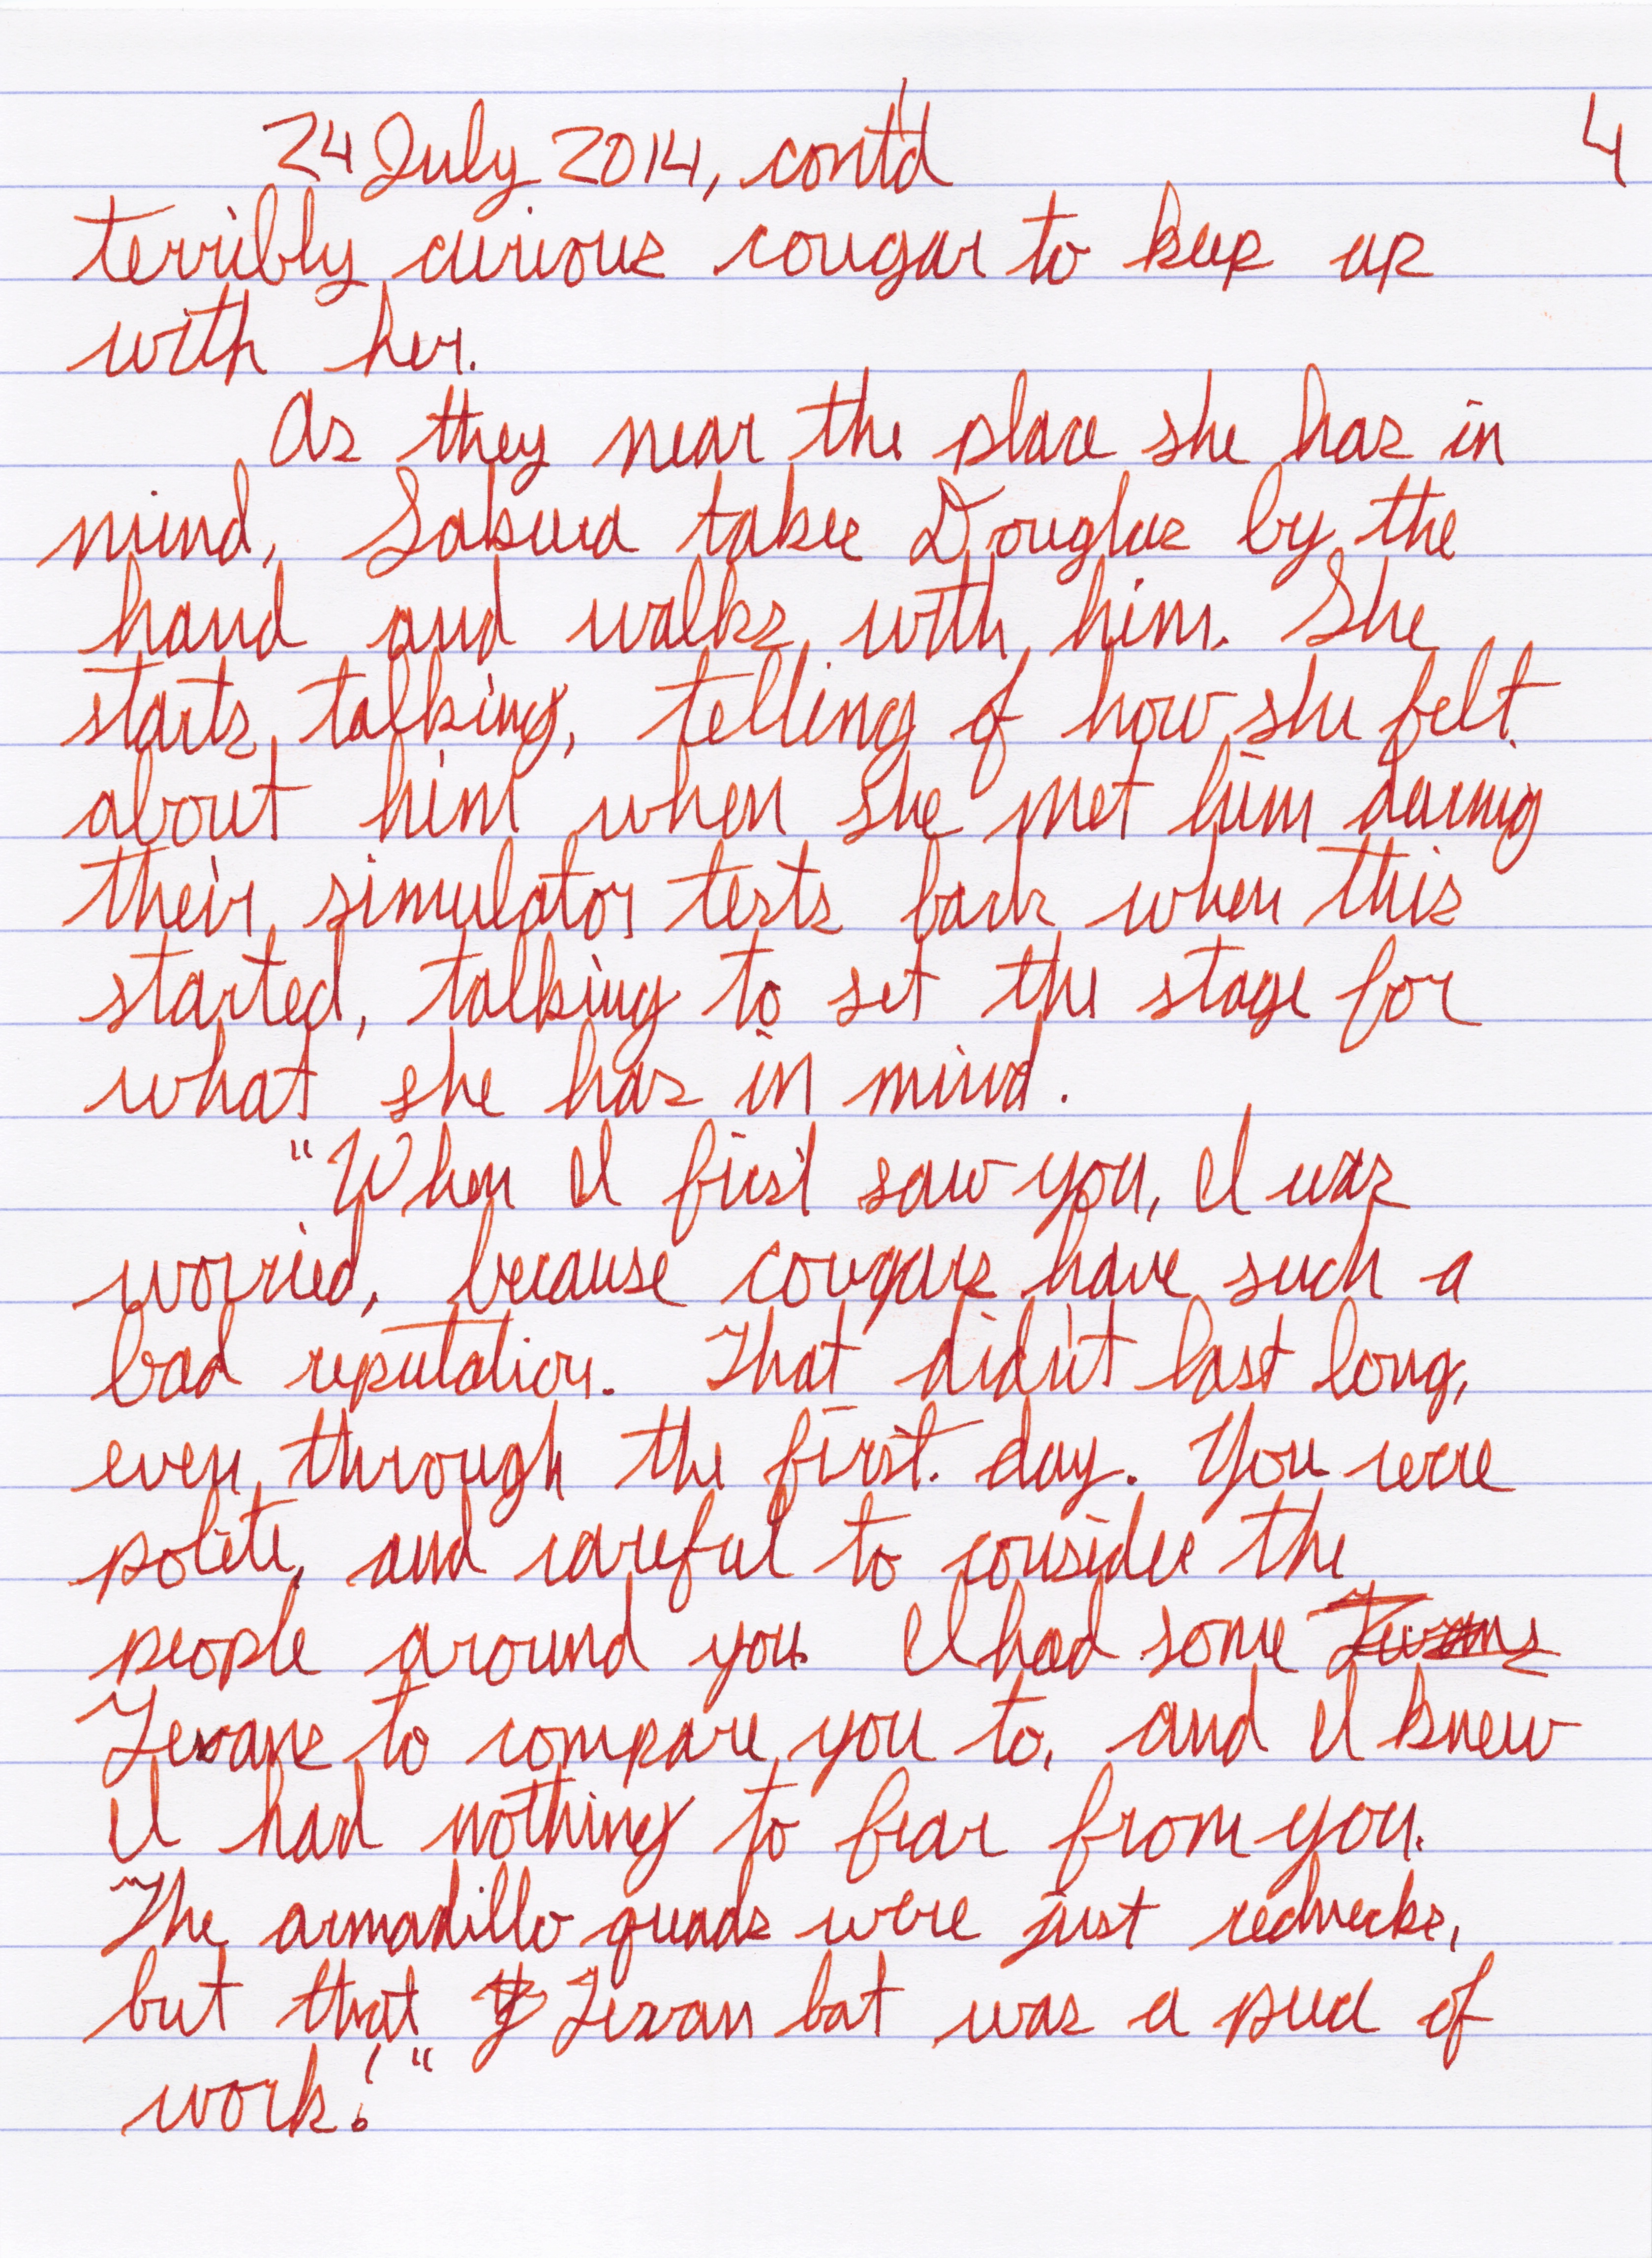 24 July 2014, cont'd 4
terribly curious cougar to keep up
with her.
As they near the place she has in
mind, Sakura takes Douglas by the
hand and walks with him. She
starts talking, telling of how she felt
about him when she met him during
their simulator tests back when this
started, talking to set the stage for
what she has in mind.
"When I first saw you, I was
worried, because cougars have such a
bad reputation. That didn't last long,
even through the first day. You were
polite, and careful to consider the
people around you. I had some
Texans to compare you to, and I knew
I had nothing to fear from you.
The armadillo quads were just rednecks,
but that Texan bat was a piece of
work!"